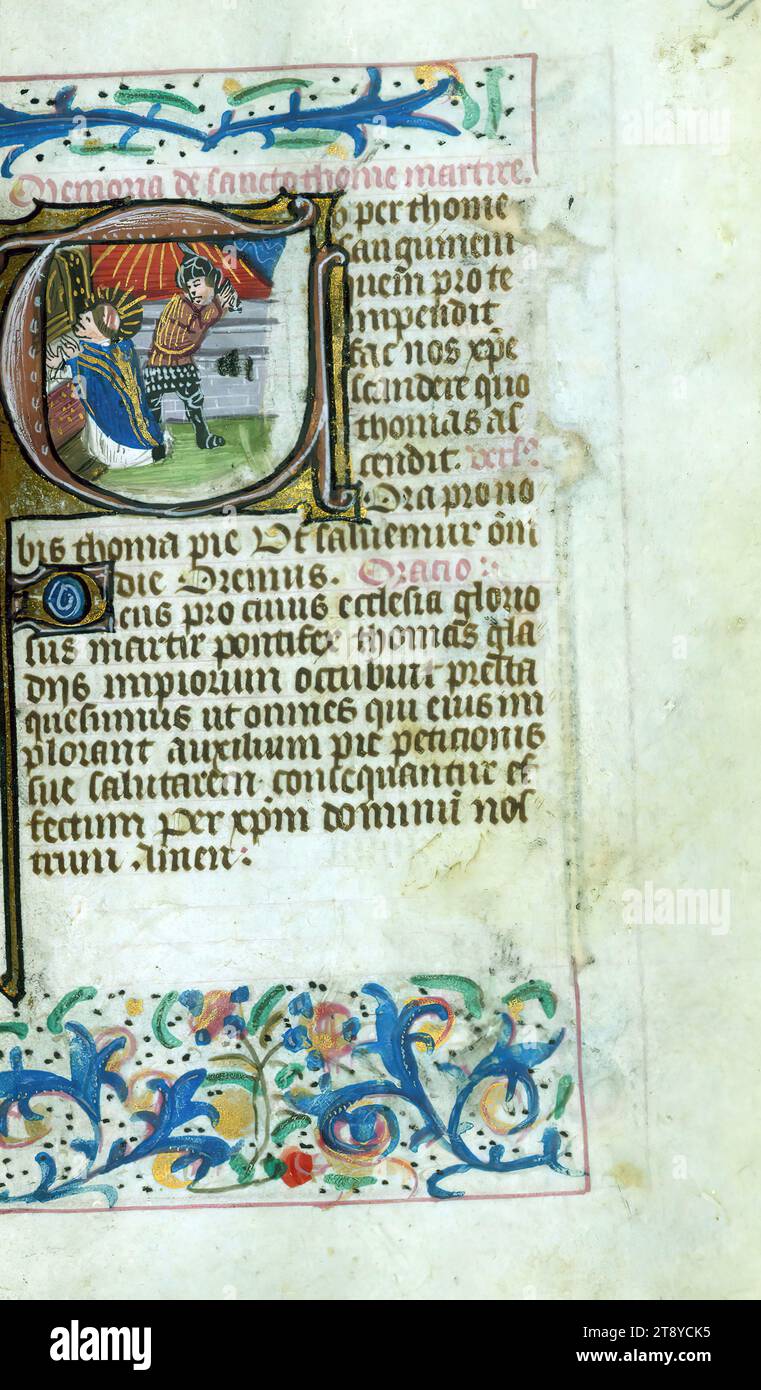 Memoria de sancto thome martire.
Tu per thome
sanguinem
quem pro te
impendit
fac nos xpe
scandere quo
thomas as
cendit. vers9
Ora pro no
bis thoma pie Ut salvemur oni
die Oremus. Oracio :
Deus pro cuius ecclesia glorio
sus martir pontifex thomas gla
diis impiorum occubuit presta
quesumus ut omnes qui eius im
plorant auxilium pie peticionis
sue salutarem consequantur ef
fectum Per xpm dominu nos
trum Amen :
alamy
alamy
alamy
Image ID: 2T8YCK5
www.alamy.com